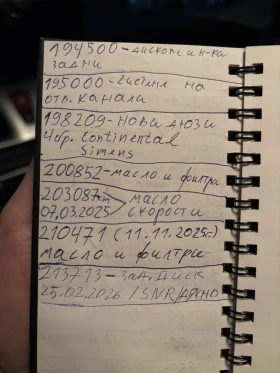 194500-дискове и н-ки
задни
195000-чистене на
отв. канали
198209-нови дюзи
4бр. Continental
Simens
200852-масло и филтри
203087км масло
07,03.2025 скорости
210471 (11.11.2025г.)
масло и филтри
213713-зад. диск
25.02.2026. / SNR/